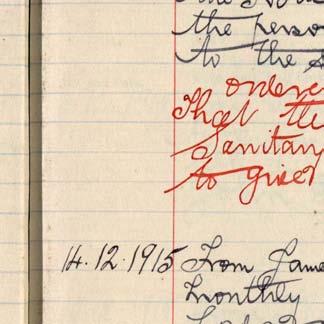 the perso
to the s
ordere
That the
Sanitary
to given
14.12.1915 From Jame
monthly